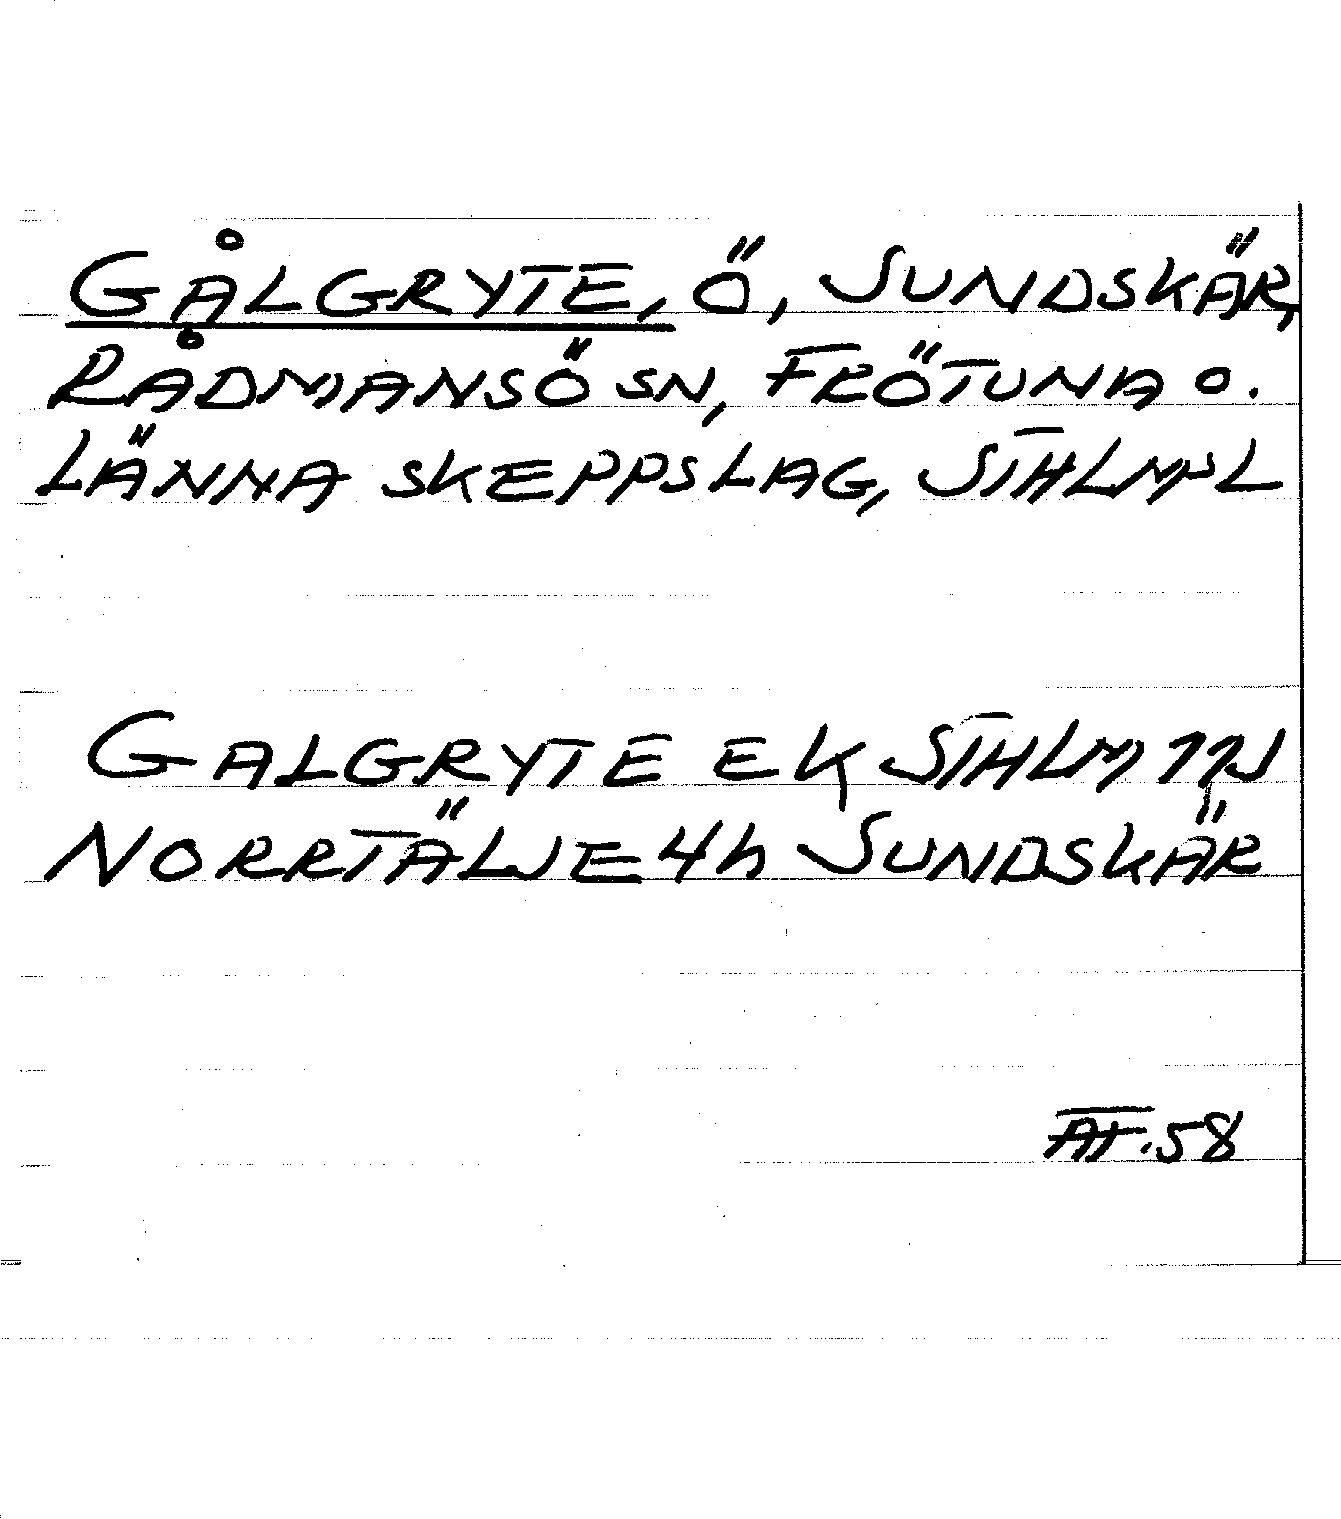 GÅLGRYTE, Ö, SUNDSKÄR,
RÅDMANSÖ SN, FRÖTUNA O.
LÄNNA SKEPPSLAG, STHLMSL
GALGRYTE EK STHLM 11N
NORRTÄLJE 4h SUNDSKÄR
AF.58